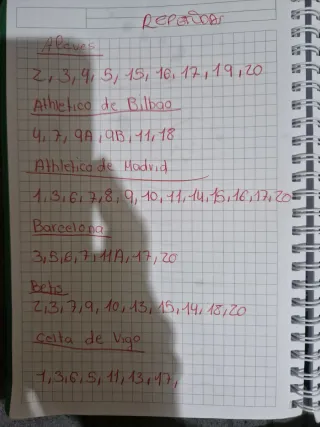 REPETIDAS
Alaves
2, 3, 4, 5, 15, 16, 17, 19, 20
Athletico de Bilbao
4, 7, 9A, 9B, 11, 18
Athletico de Madrid
1, 3, 6, 7, 8, 9, 10, 11, 14, 15, 16, 17, 20
Barcelona
3, 5, 6, 7, 11A, 17, 20
Betis
2, 3, 7, 9, 10, 13, 15, 14, 18, 20
Celta de Vigo
1, 3, 6, 5, 11, 13, 17,